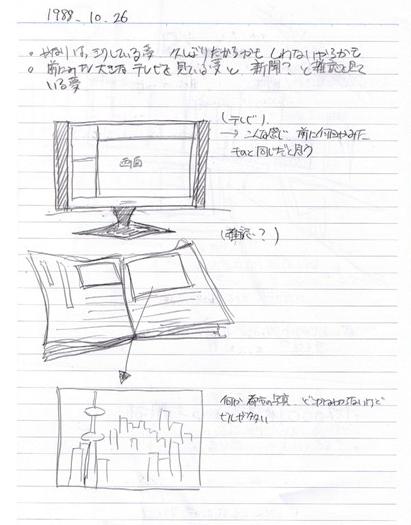 1988.10.26
。かなりはっきりしている夢 久しぶりだからかもしれないやるかも
。前にみた大きなテレビを見ている夢と 新聞?と雑誌を見て
いる夢
(テレビ).
→ こんな感じ 前に何回かみた
それと同じだと思う
画面
(雑誌?)
何か都市の写真 どこかはわからないけど
ビルがタタい